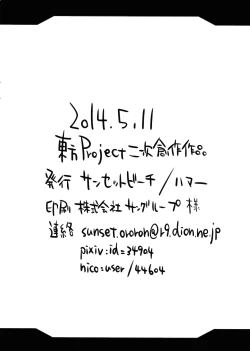 2014.5.11
東方Project二次創作作品。
発行 サンセットビーチ/ハマー
印刷 株式会社サングループ様
連絡 sunset.ororon@r9.dion.ne.jp
pixiv:id=34904
nico:user/44604